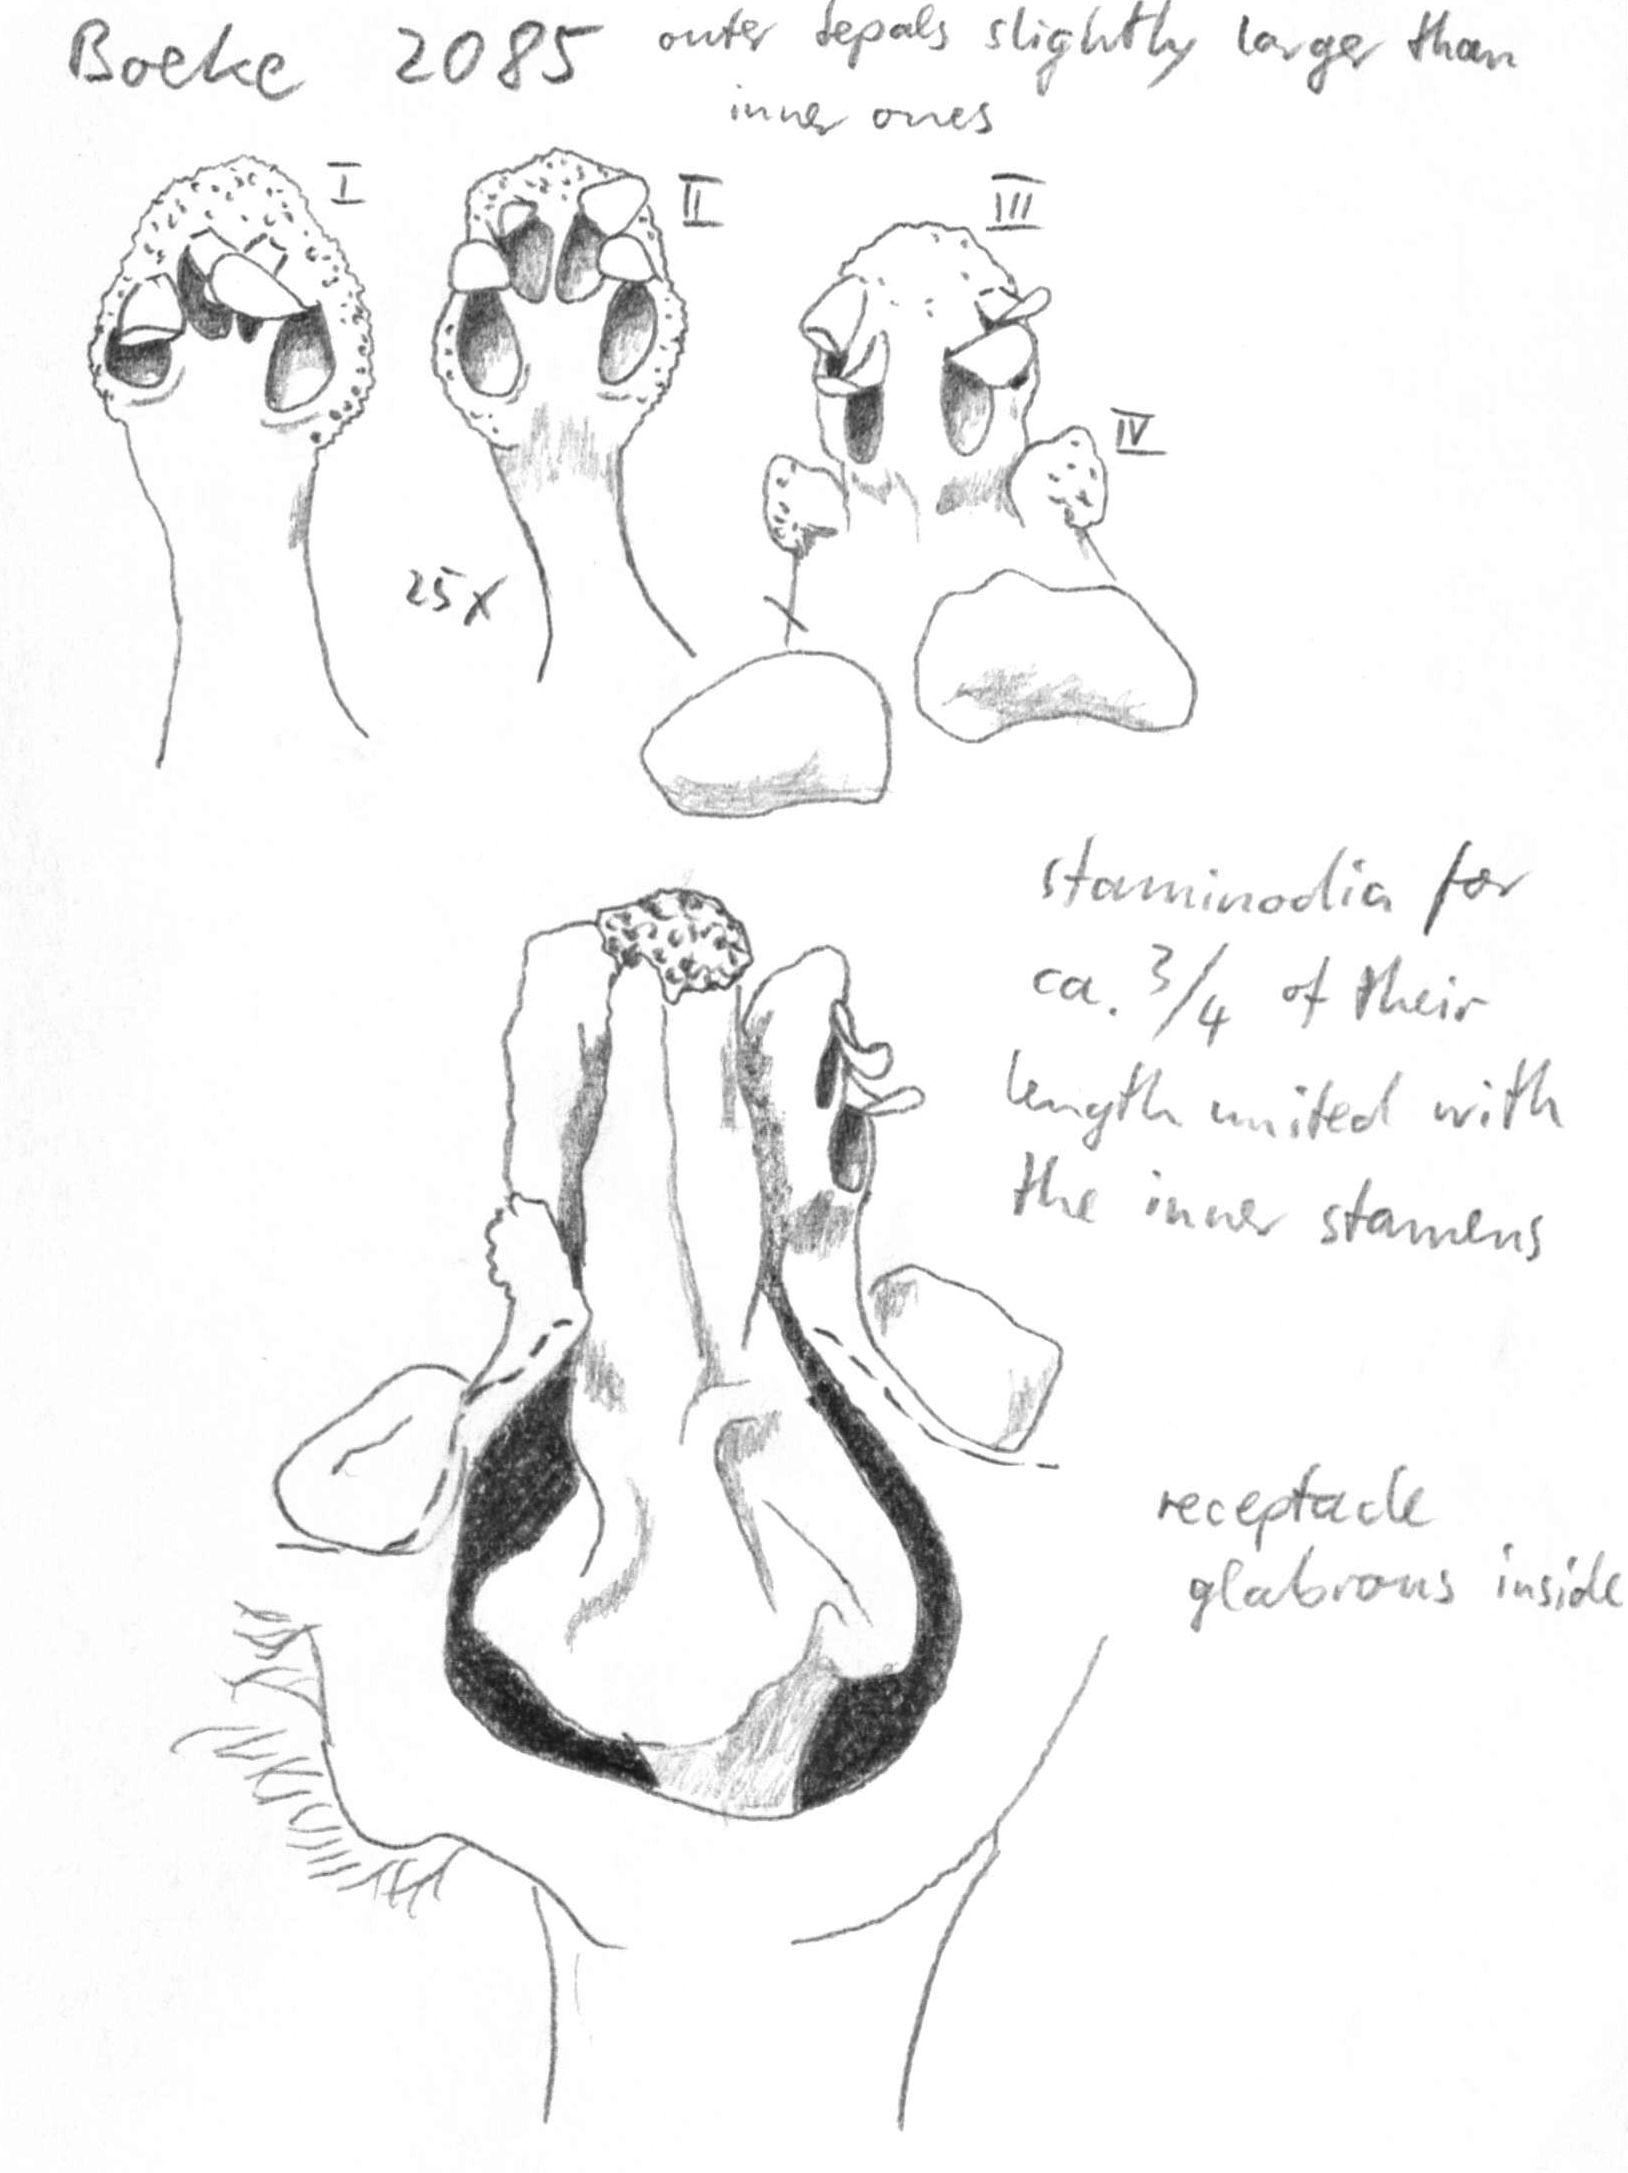 Boeke 2085
outer tepals slightly larger than
inner ones
I
II
III
IV
25x
staminodia for
ca. 3/4 of their
length united with
the inner stamens
receptacle
glabrous inside